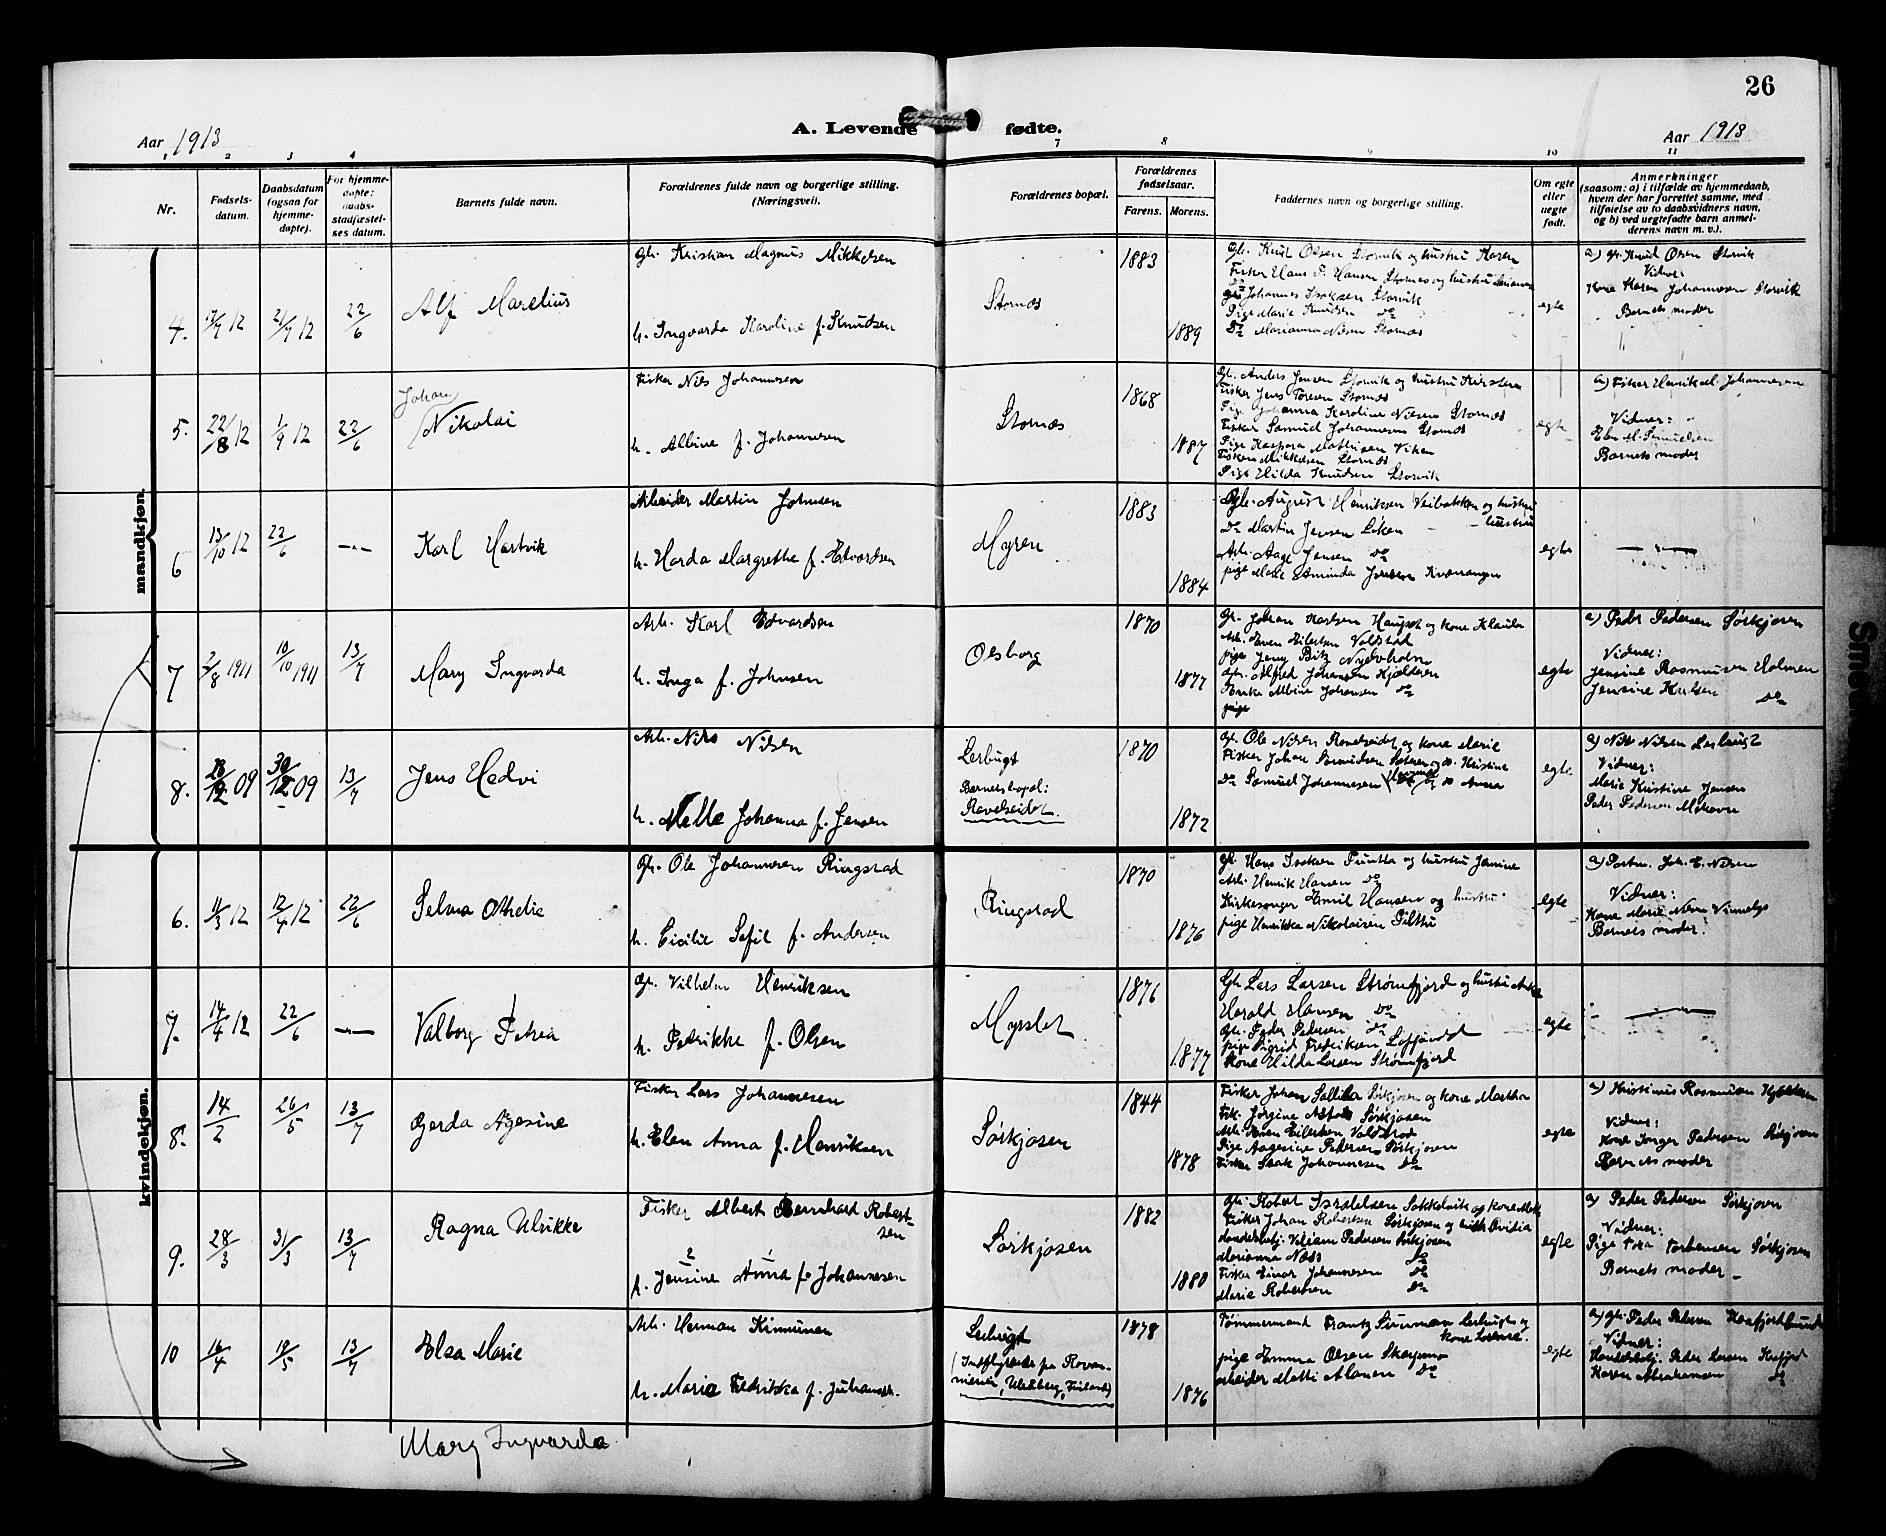 26
Aar 1913
A. Levende fødte.
Aar 1913
1 2 3 4 7 8 9 10 11
Nr.
Fødsels-
datum.
Daabsdatum
(ogsaa for
hjemme-
døpte).
For hjemme-
døpte:
daabs-
stadfæstel-
ses datum.
Barnets fulde navn.
Forældrenes fulde navn og borgerlige stilling.
(Næringsvei).
Forældrenes bopæl.
Forældrenes
fødselsaar.
Farens. Morens.
Faddernes navn og borgerlige stilling.
Om egte
eller
uegte
født.
Anmerkninger
(saasom: a) i tilfælde av hjemmedaab,
hvem der har forrettet samme, med
tilføielse av to daabsvidners navn,
og b) ved uegtefødte barn anmel-
derens navn m. v.).
mandkjøn.
4. 17/7 12 21/7 12 22/6
Alf Marelius
Gbr. Kristian Magnus Mikkelsen
h. Ingvarda Karoline f. Knudsen
Stornæs
1883
1889
Gbr. Knut Olsen Storvik og hustru Karen
Fisker Hans P. Hansen Stornæs og hustru
Johannes Isaksen Storvik
Pige Marie Knudsen do
do Marianna Nilsen Stornæs
egte
a) gbr. Knud Olsen Storvik
Vidner:
Kone Karen Johannesen Storvik
Barnets moder
5. 22/8 12 1/9 12 22/6
Johan
Nikolai
Fisker Nils Johannesen
h. Albine f. Johannesen
Stornæs
1868
1887
Gbr. Anders Jensen Storvik og hustru Kirsten
Fisker Jens Toresen Stornæs
Pige Johanna Karoline Nilsen Stornæs
Fisker Samuel Johannesen Stornæs
Pige Kaspara Mattisen Viken
Fisker Mikkelsen Stornæs
Pige Hilda Knudsen Storvik
egte
a) Fisker Henrik M. Johannesen
Vidner:
Elen M. Samuelsen
Barnets moder
6 13/10 12 22/6 —
Karl Hartvik
Arbeider Martin Johnsen
h. Harda Margrethe f. Edvardsen
Myren
1883
1884
Gbr. August Henriksen Veibakken og hustru
do Martin Jensen Löken - - hustru
Arb. Aage Jensen do
pige Marie Aminda Jensen Kvænangen
egte
—
7 2/8 1911 10/10 1911 13/7
Mary Ingvarda
Arb. Karl Edvardsen
h. Inga f. Johnsen
Olsborg
1870
1877
Gbr. Johan Karlsen Haugset og kone Klaudia
Arb. Even Eilertsen Valdstad
pige Jenny Bitz Nydvholm
Gbr. Alfred Johansen Kjælderen
Enke Albine Johansen do
pige
egte
a) Peder Pedersen Sørkjosen
Vidner:
Jensine Rasmusen Holmen
Jensine Karlsen do
8. 28/12 09 30/12 09 13/7
Jens Hedvi
Arb. Nils Nilsen
h. Malla Johanna f. Jensen
Lerbugt
Barnets bopæl:
Ravelseidet.
1870
1872
Gbr. Ole Nilsen Ravelseidet og kone Marie
Fisker Johan og do Kristine
do Samuel Johannesen og do Anna
egte
a) Nils Nilsen Lerbugt
Vidner:
Marie Kristine Jensen
Peder Pedersen
kvindekjøn.
6. 11/3 12 12/4 12 22/6
Selma Othelie
Gbr. Ole Johannesen Ringstad
h. Cicilie Sofie f. Andersen
Ringstad
1870
1876
Gbr. Hans Isaksen og hustru Janine
Arb. Henrik Hansen do
Kirkesanger Emil Hansen og hustru
pige Henrikka Nikolaisen
egte
a) Postm. Joh. E. Nilsen
Vidner:
Kone Marie Nilsen
Barnets moder.
7. 14/4 12 22/6 —
Valborg Petrea
Gbr. Vilhelm Henriksen
h. Petrikke f. Olsen
Myrslet
1876
1877
Gbr. Lars Larsen Strømfjord og hustru
Harald Hansen do
Gbr. Peder Pedersen do
pige Sigrid Fredriksen
Kone Hilda Larsen Strømfjord
egte
—
8. 14/2 26/5 13/7
Gerda Agesine
Fisker Lars Johannesen
h. Elen Anna f. Henriksen
Sørkjosen
1844
1878
Fisker Johan Sallila Sørkjosen og kone Martha
Frk. Jørgine Sørkjosen
Arb. Even Eilertsen Valdstad
Pige Aagesine Pedersen Sørkjosen
Fisker Isak Johannesen do
egte
a) Kristinus Rasmusen Kjælderen
Vidner:
Kone Inger Pedersen Sørkjosen
Barnets moder
9. 28/3 31/3 13/7
Ragna Ulrikke
Fisker Albert Bernhard Robert-
sen
2 1
h. Jensine Anna f. Johannesen
Sørkjosen
1882
1880
Gbr. Robert Isralelsen Sokkelvik og kone
Fisker Johan Robertsen Sørkjosen og hustru Ovidia
Handelsbetj. Viliam Pedersen Sørkjosen
Marianna Næss do
Fisker Einar Johannesen do
Marie Robertsen do
egte
a) Peder Pedersen Sørkjosen
Vidner:
Pige Tora Torbensen Sørkjosen
Barnets moder —
10 16/4 19/5 13/7
Elsa Marie
Arb. Herman Kinnunen
h. Maria Fredrikka f. Juhansdr.
Lerbugt
(Indflyttede fra Rovan-
niemi, Uleåborg, Finland)
1878
1876
Tømmermand Frantz Lerbugt og
kone
pige Emma Olsen
arbeider Matti Alanen do
egte
a) gbr. Peder Pedersen Kaafjordbund
Vidner:
Handelsbetj. Peder Larsen Kaafjord
Karen Abrahamsen do
Mary Ingvarda